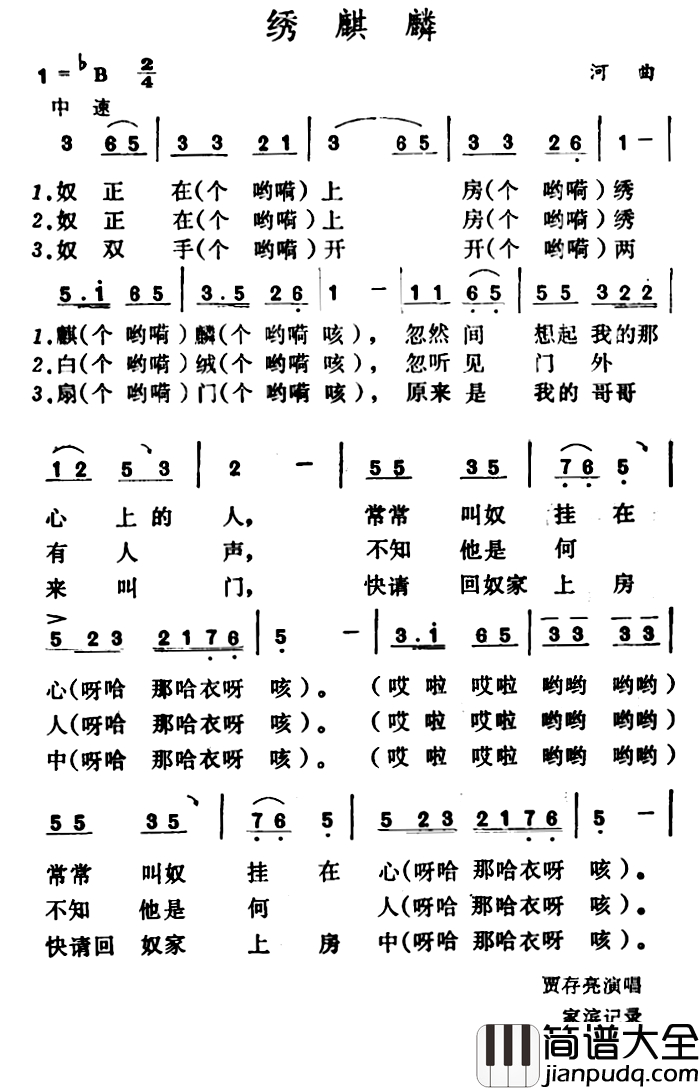 绣麒麟
1=♭B 2/4 河曲
中速
3 65 | 33 21 | 3 65 | 33 26 | 1 - |
1.奴正在(个哟嗬)上房(个哟嗬)绣
2.奴正在(个哟嗬)上房(个哟嗬)绣
3.奴双手(个哟嗬)开开(个哟嗬)两
5.i 65 | 3.5 26 | 1 - | 11 65 | 55 322 |
1.麒(个哟嗬)麟(个哟嗬咳),忽然间想起我的那
2.白(个哟嗬)绒(个哟嗬咳),忽听见门外
3.扇(个哟嗬)门(个哟嗬咳),原来是我的哥哥
12 53 | 2 - | 55 35 | 76 5 |
心上的人,常常叫奴挂在
有人声,不知他是何
来叫门,快请回奴家上房
5 23 2176 | 5 - | 3.i 65 | 33 33 |
心(呀哈那哈衣呀咳)。(哎啦哎啦哟哟哟哟)
人(呀哈那哈衣呀咳)。(哎啦哎啦哟哟哟哟)
中(呀哈那哈衣呀咳)。(哎啦哎啦哟哟哟哟)
55 35 | 76 5 | 5 23 2176 | 5 - |
常常叫奴挂在心(呀哈那哈衣呀咳)。
不知他是何人(呀哈那哈衣呀咳)。
快请回奴家上房中(呀哈那哈衣呀咳)。
贾存亮演唱
家滨记录
简谱大全
jianpudq.com